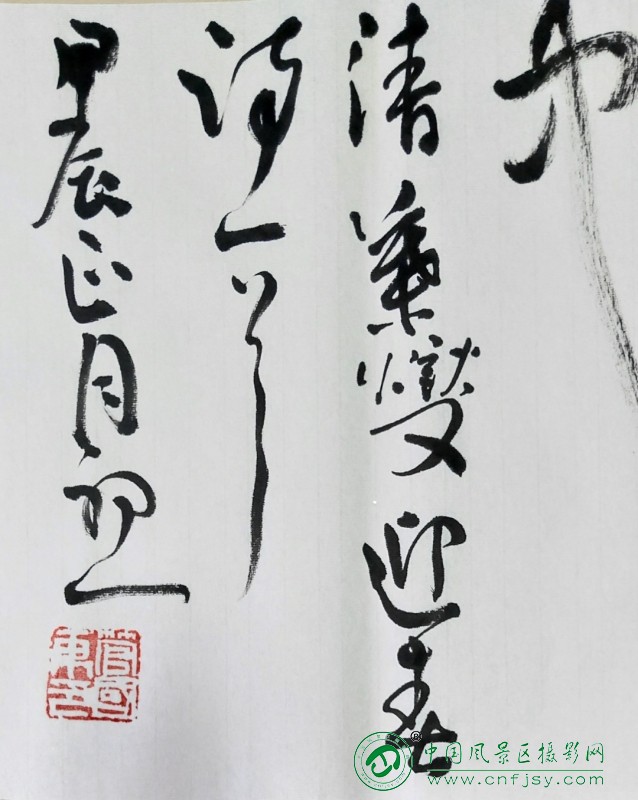 清葉燮迎春
诗一首
甲辰正月初一
中国风景区摄影网
www.cnfjsy.com